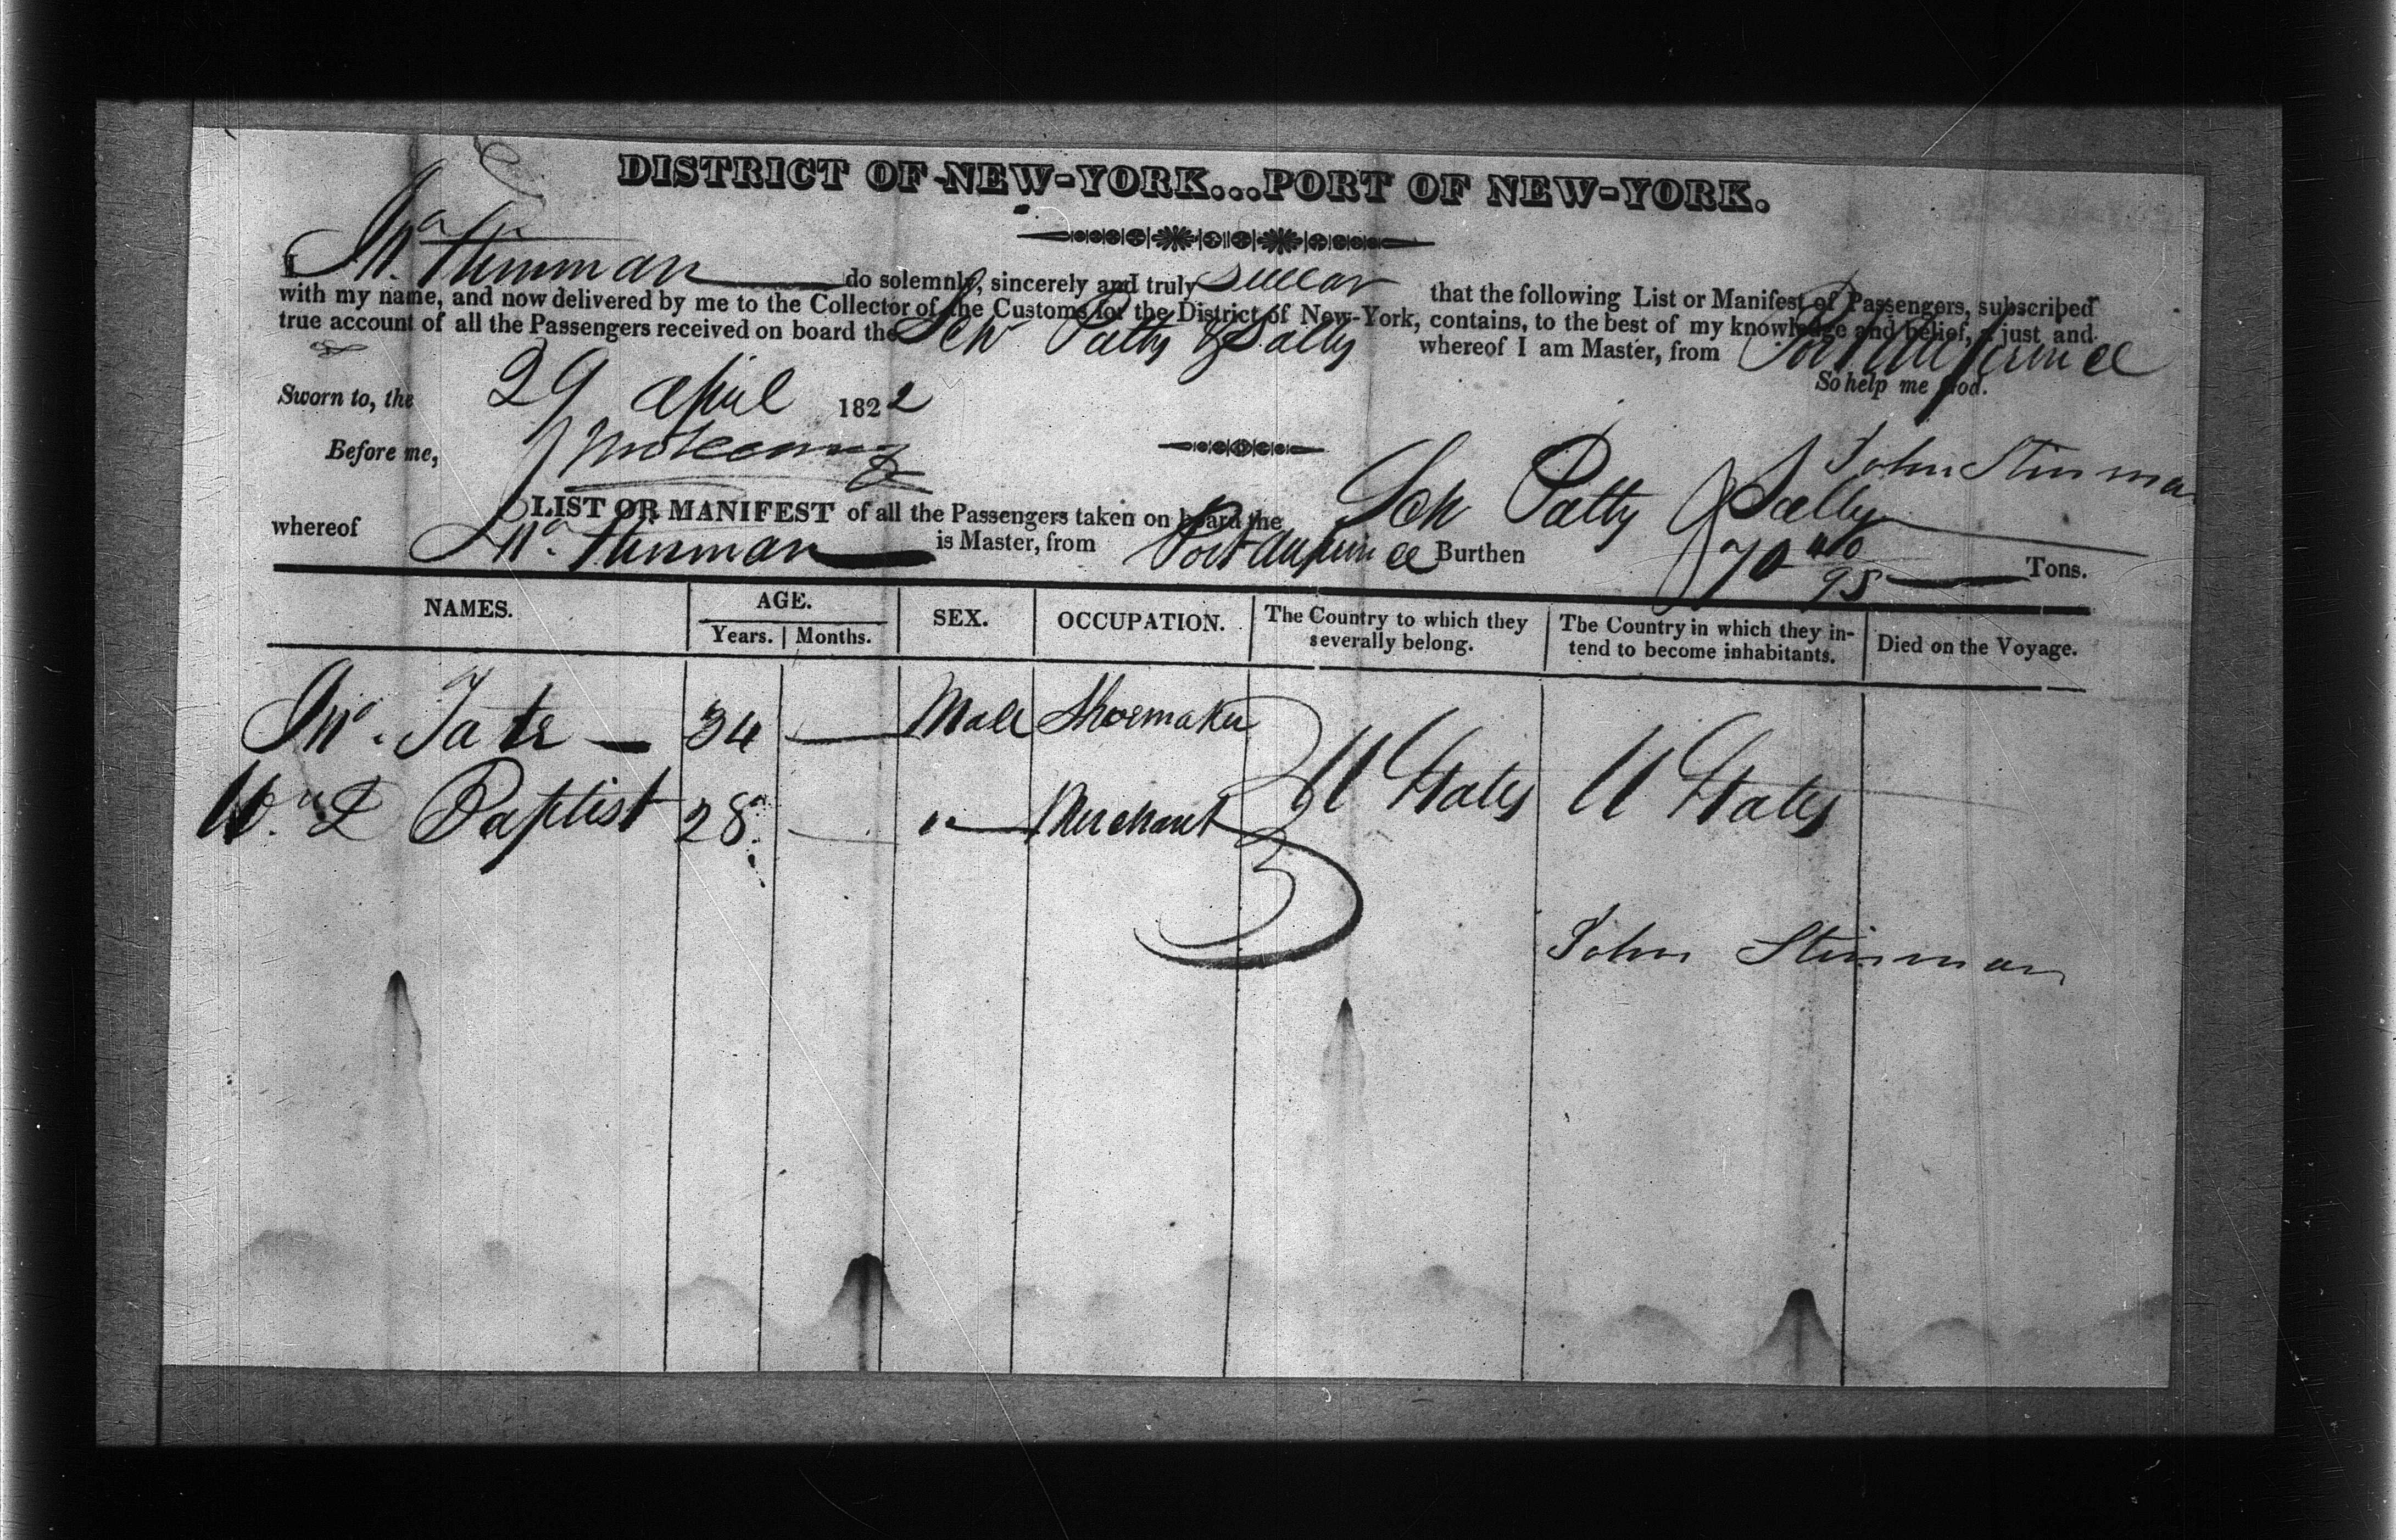 DISTRICT OF NEW-YORK...PORT OF NEW-YORK.
I Jno. Stinman do solemnly, sincerely and truly swear that the following List or Manifest of Passengers, subscribed
with my name, and now delivered by me to the Collector of the Customs for the District of New-York, contains, to the best of my knowledge and belief, a just and
true account of all the Passengers received on board the Schr Patty & Sally whereof I am Master, from Port au prince
So help me God.
Sworn to, the 29 April 1822
Before me,
John Stinman
LIST OR MANIFEST of all the Passengers taken on board the Sch Patty & Sally
whereof Jno. Stinman is Master, from Port au prince Burthen 70 40/95 Tons.
NAMES. AGE. SEX. OCCUPATION. The Country to which they severally belong. The Country in which they intend to become inhabitants. Died on the Voyage.
Years. Months.
Jno. Tate 34 Male Shoemaker U States U States
Wm. L Baptist 28 " Merchant
John Stinman